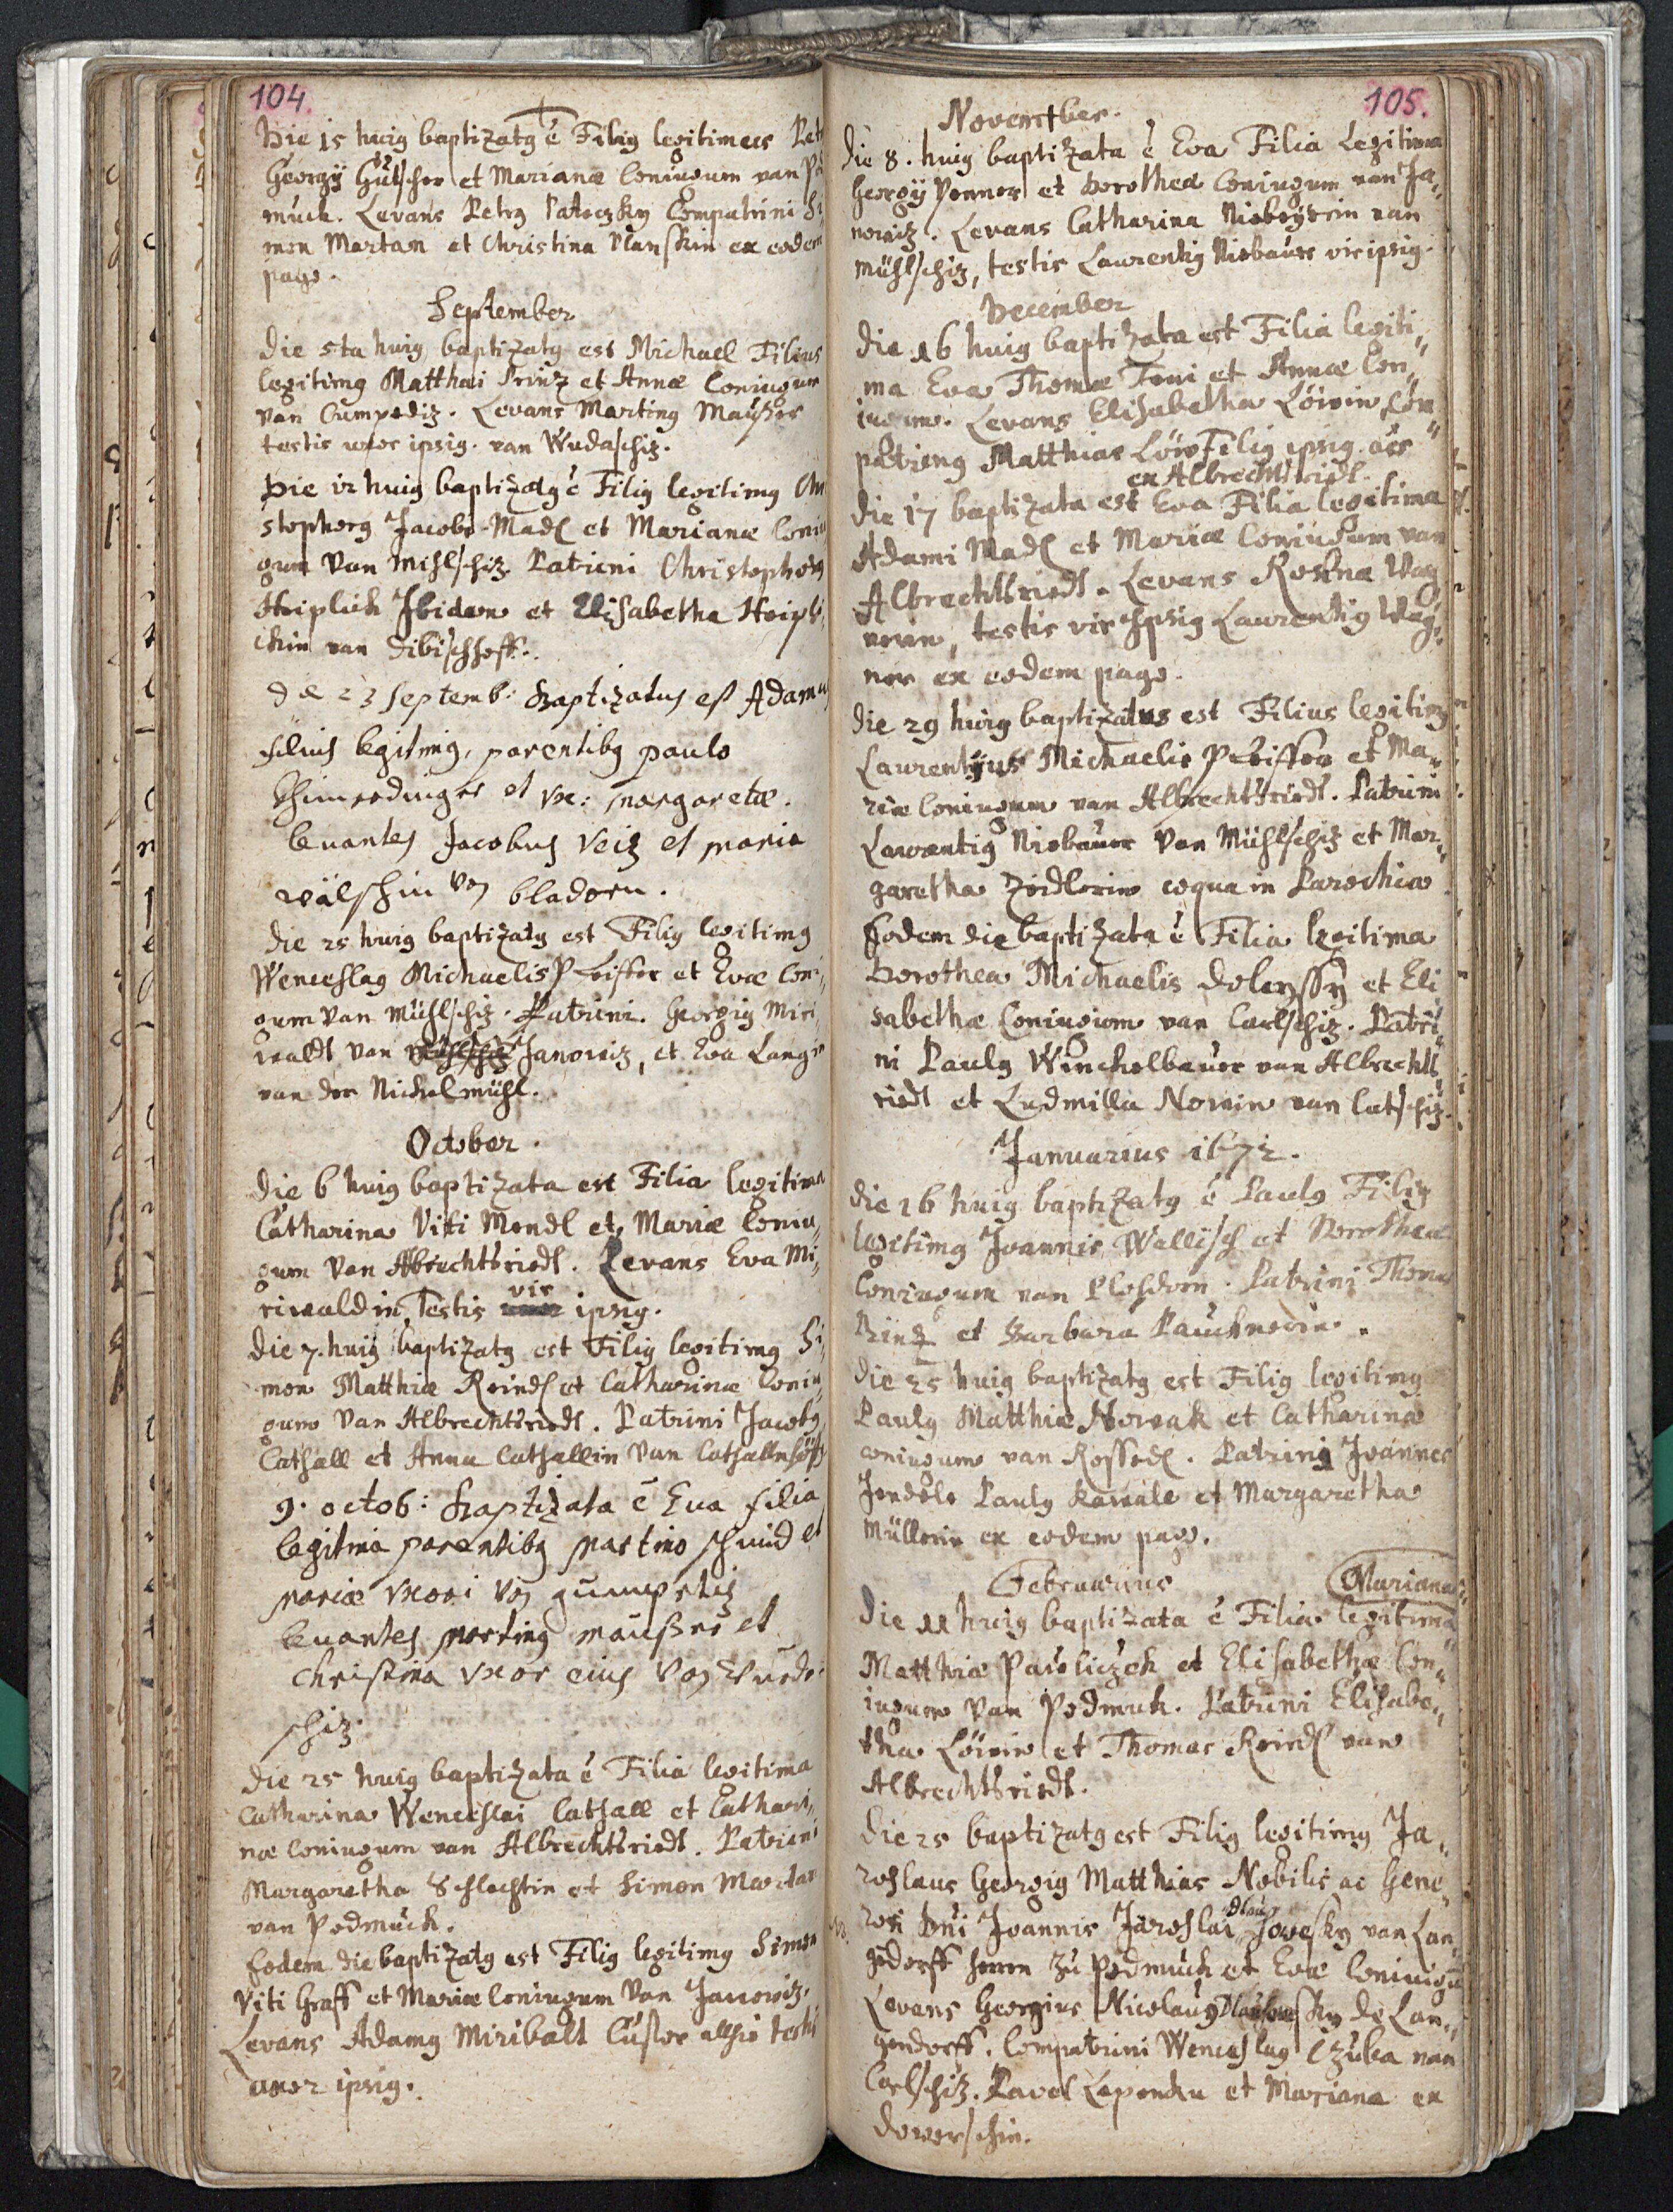 104.
Die 15 huig baptizatg é Filig legitimus Pet
Georgÿ Gütscher et Marianæ Coniugum van Po
muck. Levans Petrg Patoczky Compatrini Si
mon Martan et Christina Vlanskin ex eodem
pago.
September
Die 5ta huig baptizatg est Michael Filius
legitimg Matthæi Prinz et Annæ Coniugum
van Cumpediz. Levans Marting Maußer
testis uxor ipsig. van Wudaschiz.
Die 12 huig baptizatg é Filig legitimg Chri
stopherg Jacobi Madl et Marianæ Coniu
gum Van Mihlschiz. Patrini Christophorg
Striplick Ibidem et Elisabetha Stripli,
ckin van Dibischhoff.
Die 23 Septemb: Baptizatus est Adamus
filius legitimg, parentibg paulo
et vx: Margaretæ.
levantes Jacobus Veiz et Maria
wälschin Von bladorn.
Die 25 huig baptizatg est Filig legitimg
Wenceslag Michaelis Pfeiffer et Evæ Coni,
gum Van Mühlschiz. Patrini. Georgig Miri
waldt van Janowiz, et Eva Langin
van der Nickelmühl.
October.
Die 6 huig baptizata est Filia legitima
Catharina Viti Mendl et Mariæ Coniu,
gum Van Albrechtsriedt. Levans Eva Mi,
vir
riwaldin, Testis ipsig.
Die 7. huig baptizatg est Filig legitimg Si
mon Matthiæ Reindl et Catharinæ Coniu,
gum Van Albrechtsriedt. Patrini Jacobg
Cathall et Anna Cathallin Van Cathallnhöff
9. octob: Baptizata é Eva filia
legitima parentibg Martino schmid et
Mariæ vxori Von gumpertiz
levantes Marting maußer et
Christina vxor eius Von Wude
schiz.
Die 25 huig baptizata é Filia legitima
Catharina Wenceslai Cathall et Cathari,
næ Coniugum van Albrechtsriedt. Patrini
Margaretha Schlechtin et Simon Martan
van Podmuck.
Eodem die baptizatg est Filig legitimg Simon
Viti Graff et Mariæ Coniugum Van Janowiz.
Levans Adamg Miribalt Custor testis
uxor ipsig.
105.
November.
Die 8. huig baptizata é Eva Filia Legitima
Georgÿ Penner et Dorotheæ Coniugum van Ja,
nowiz. Levans Catharina Niebeÿrin van
Mühlschiz, testis Laurentig Niebauer vir ipsig.
December
Die 16 huig baptizata est Filia legiti,
ma Eva Thomæ Toni et Annæ Con,
iugum. Levans Elisabetha Löwin, Com
patring Matthias Löw Filig ipsig. oës
ex Albrechtsriedt.
Die 17 baptizata est Eva Filia legitima
Adami Madl et Mariæ Coniugum van
Albrechtsriedt. Levans Rosina Wag
nerin, testis vir Ipsig Laurentig Wag,
ner ex eodem pago.
Die 29 huig baptizatus est Filius legitimg
Laurentÿus Michaelis Pfeiffer et Ma,
riæ Coniugum van Albrechtsriedt. Patrini
Lawrentig Niebauer Van Mühlschiz et Mar,
garetha Zindlerin coqua in Parochia
Eodem die baptizata é Filia legitima
Dorothea Michaelis Dolenssÿ et Eli
sabethæ Coniugum van Carlschiz. Patri,
ni Paulg Winckelbauer van Albrechts
riedt et Ludmilla Nowin van Catschiz.
Januarius 1672.
Die 16 huig baptizatg é Paulg Filig
legitimg Joannis Wellisch et Dorotheæ
Coniugum van Plosdorn. Patrini Thomas
Rinz et Barbara Pauknerin.
Die 25 huig baptizatg est Filig legitimg
Paulg Matthiæ Nowak et Catharinæ
coniugum van Rossedl. Patrini Joannes
Jendele Paulg Kawale et Margaretha
Müllerin ex eodem pago.
Februarius
Mariana
Die 11 huig baptizata é Filia legitima
Matthiæ Pawliczek et Elisabethæ Con,
iugum Van Podmuk. Patrini Elisabe,
tha Löwin et Thomas Reindl van
Albrechtsriedt.
Die 25 baptizatg est Filig legitimg Ja,
roslaus Georgig Matthias Nobilis ac Gene
Dlau
rosi Dni Joannis Jaroslai howesky van Lan,
gedorff herrn zu Podmuck et Evæ Coniugū
Levans Georgius Nicolaug Dlauhowesky de Lan,
gendorff. Compatrini Wenceslag Czuka van
Carlschiz. Pavel Lependu et Mariana ex
Dowerschin.